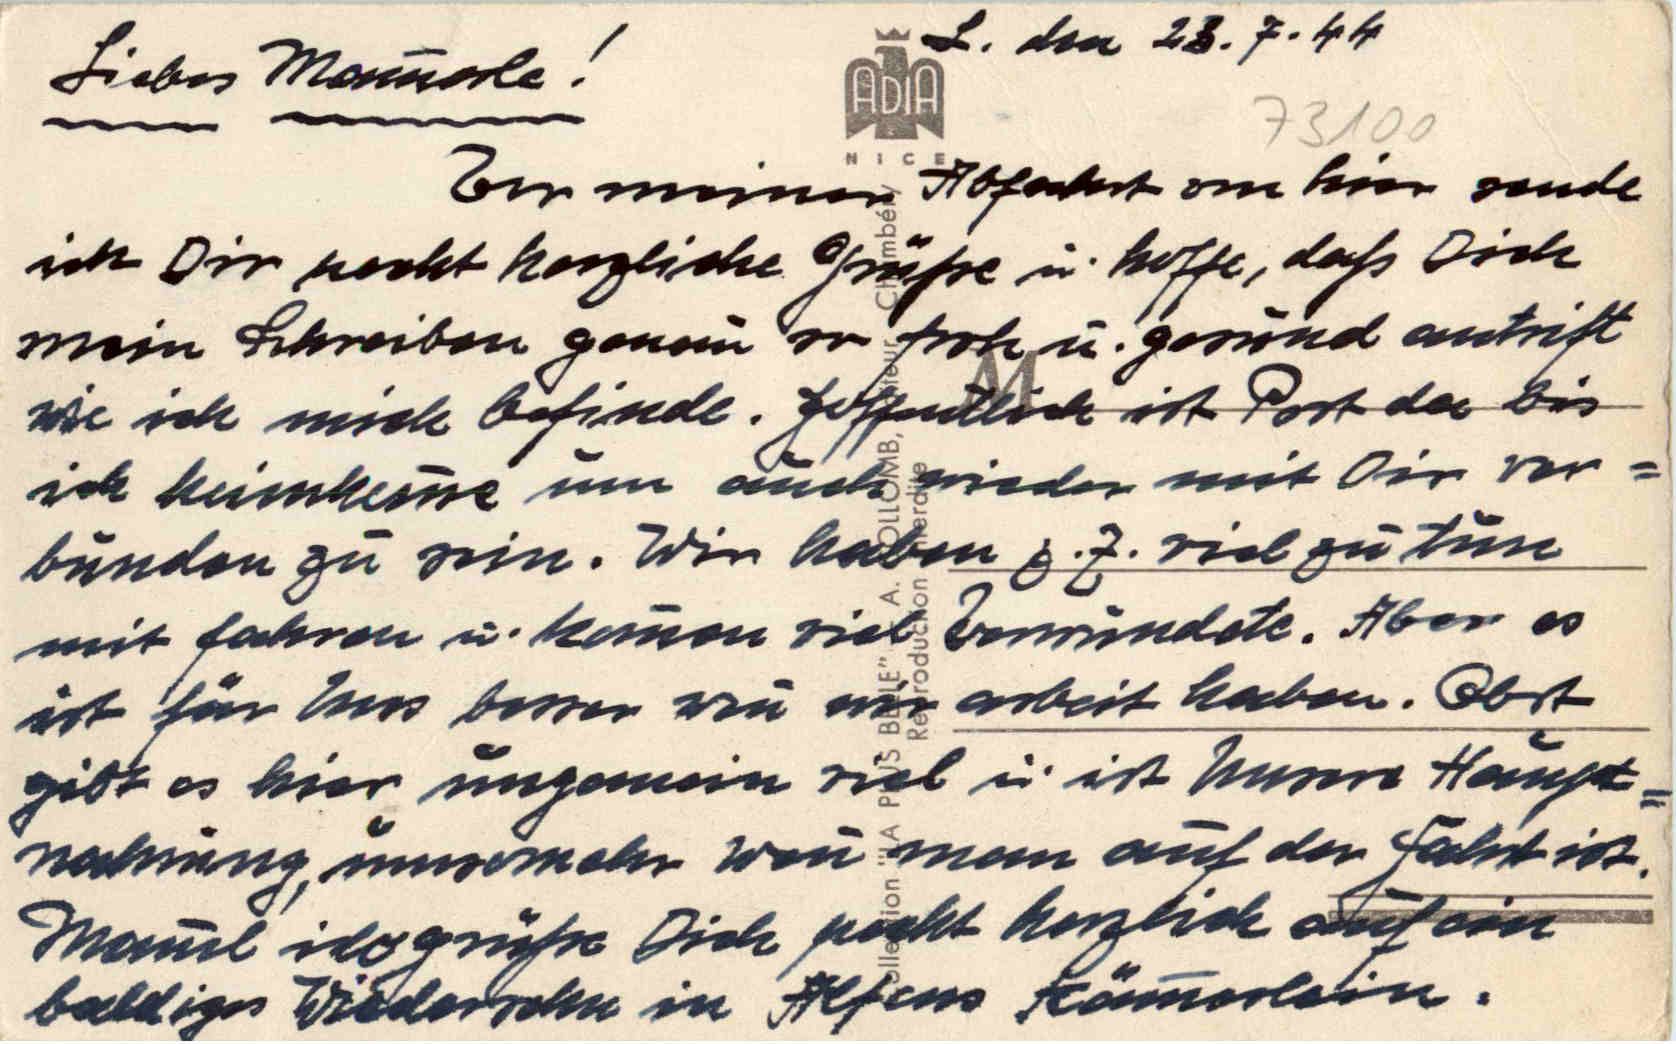 L. den 23. 7. 44
Liebes Mammerle!
ADIA
NICE
73100
Vor meiner Abfahrt von hier sende
ich Dir recht herzliche Grüße u. hoffe, daß Dich
mein Schreiben genau so froh u. gesund antrift
wie ich mich befinde. Hoffentlich ist Post da bis
ich heimkomme um auch wieder mit Dir ver=
bunden zu sein. Wir haben z. Z. viel zu tun
mit fahren u. kommen viel Verwundete. Aber es
ist für Uns besser wen wir arbeit haben. Obst
gibt es hier ungemein viel u. ist Unsere Haupt=
nahrung, umsomehr wen man auf der Fahrt ist.
Mammel ich grüße Dich recht herzlich auf ein
baldiges Wiedersehn in Alfons Kämmerlein.
Collection "LA PLUS BELLE" — A. COLLOMB, Chambéry
Reproduction interdite
M